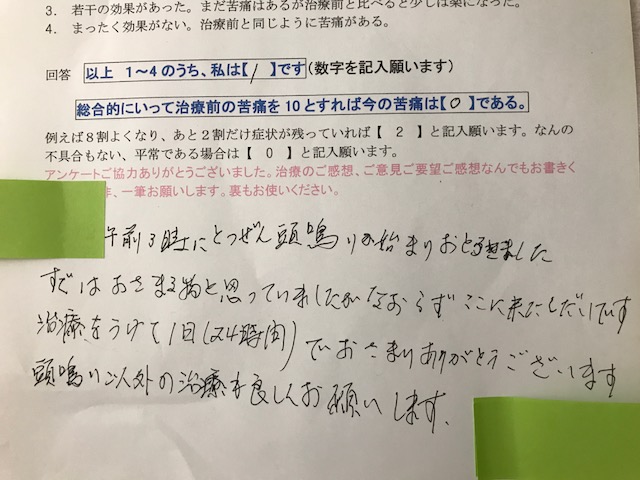 3. 若干の効果があった。まだ苦痛はあるが治療前と比べると少しは楽になった。
4. まったく効果がない。治療前と同じように苦痛がある。
回答 以上 1～4のうち、私は【1】です(数字を記入願います)
総合的にいって治療前の苦痛を10とすれば今の苦痛は【0】である。
例えば8割よくなり、あと2割だけ症状が残っていれば【 2 】と記入願います。なんの
不具合もない、平常である場合は【 0 】と記入願います。
アンケートご協力ありがとうございました。治療のご感想、ご意見ご要望ご感想なんでもお書きく
一筆お願いします。裏もお使いください。
午前3時にとつぜん頭鳴りが始まりおどろきました
すぐはおさまる物と思っていましたがなおらずここに来たしだいです
治療をうけて1日(24時間)でおさまりありがとうございます
頭鳴り以外の治療も良しくお願いします。